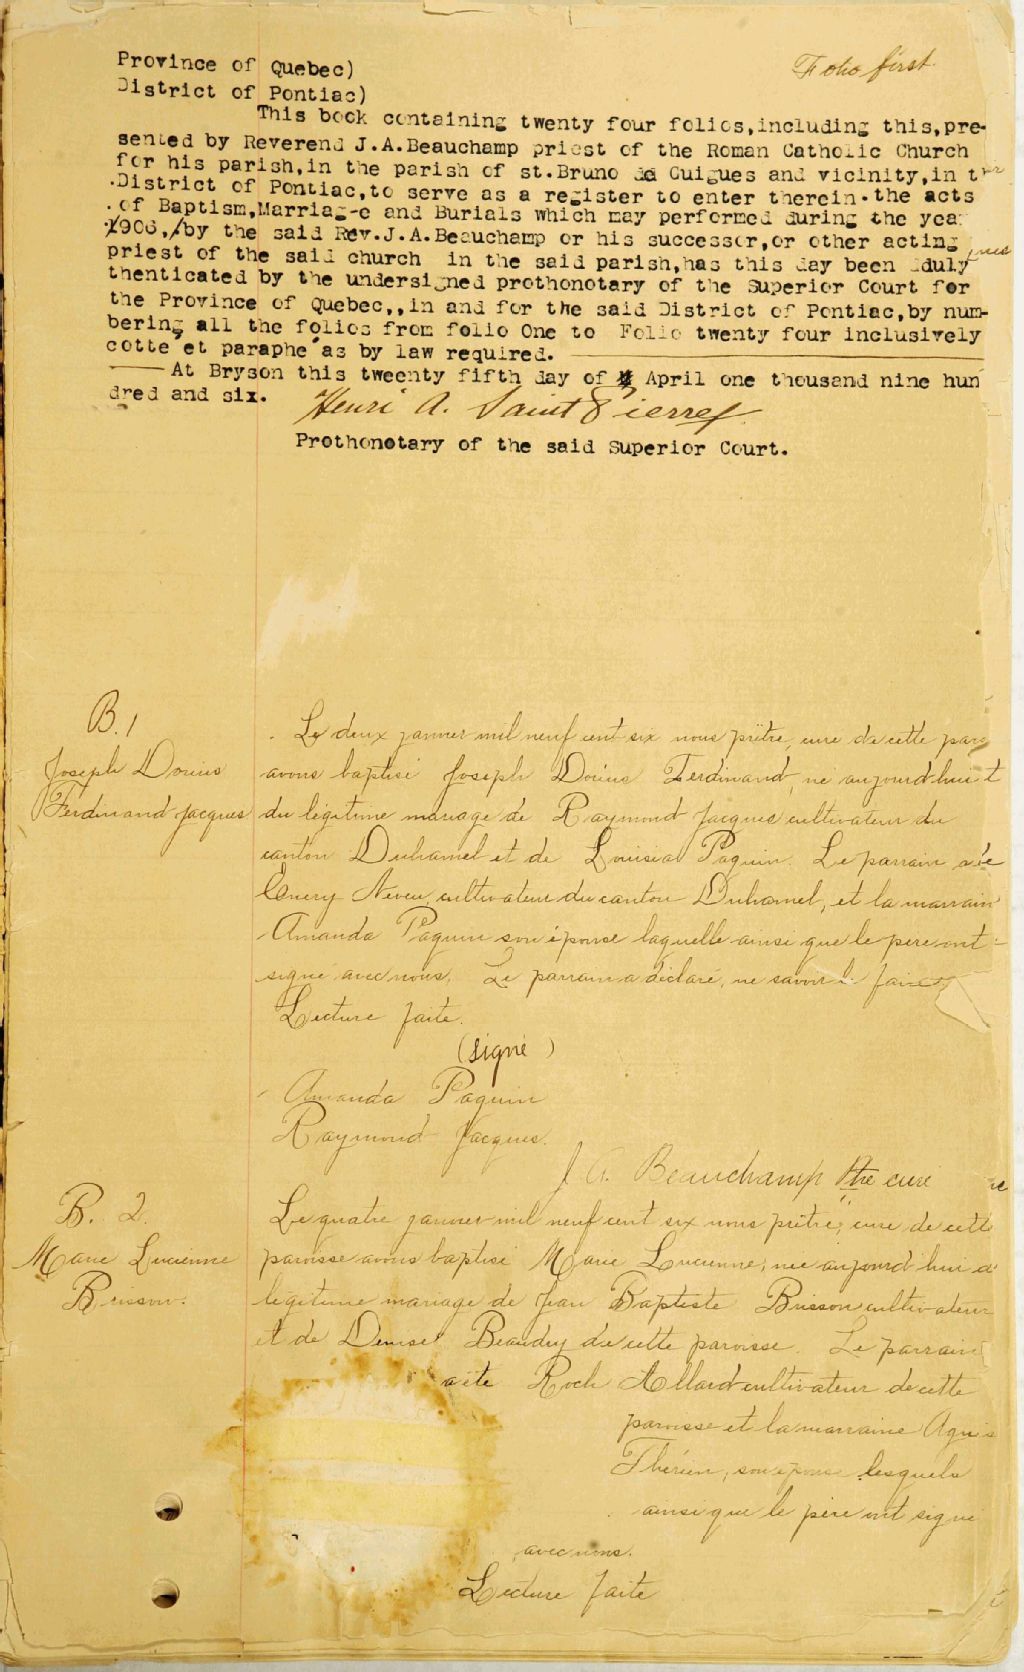 Folio first
Province of Quebec)
District of Pontiac)
This book containing twenty four folios,including this,pre-
sented by Reverend J.A.Beauchamp priest of the Roman Catholic Church
for his parish,in the parish of st.Bruno de Guigues and vicinity,in the
District of Pontiac,to serve as a register to enter therein.the acts
of Baptism,Marriag-e and Burials which may performed during the year
1906,/by the said Rev.J.A.Beauchamp or his successor,or other acting
priest of the said church in the said parish,has this day been duly
thenticated by the undersigned prothonotary of the Superior Court for
the Province of Quebec,,in and for the said District of Pontiac,by num-
bering all the folios from folio One to Folio twenty four inclusively
cotte et paraphe as by law required.
At Bryson this tweenty fifth day of April one thousand nine hun
dred and six.
Henri A. Saint Pierre
Prothonotary of the said Superior Court.
B. 1
Joseph Dorius
Ferdinand Jacques
Le deux janvier mil neuf cent six nous prêtre, curé de cette paro
avons baptisé Joseph Dorius Ferdinand, né aujourd'hui et
du légitime mariage de Raymond Jacques cultivateur du
canton Duhamel et de Louisa Paquin. Le parrain a été
Emery Neveu, cultivateur du canton Duhamel, et la marraine
Amanda Paquin son épouse laquelle ainsi que le père ont
signé avec nous. Le parrain a déclaré, ne savoir le faire
Lecture faite.
(signé)
Amanda Paquin
Raymond Jacques.
J. A. Beauchamp Ptre curé
B. 2.
Marie Lucienne
Brisson.
Le quatre janvier mil neuf cent six nous prêtre, curé de cette
paroisse avons baptisé Marie Lucienne, née aujourd'hui d
légitime mariage de Jean Baptiste Brisson cultivateur
et de Denise Beaudry de cette paroisse. Le parrain
a été Roch Allard cultivateur de cette
paroisse et la marraine Agnès
Thérien, son épouse lesquels
ainsi que le père ont signé
avec nous.
Lecture faite